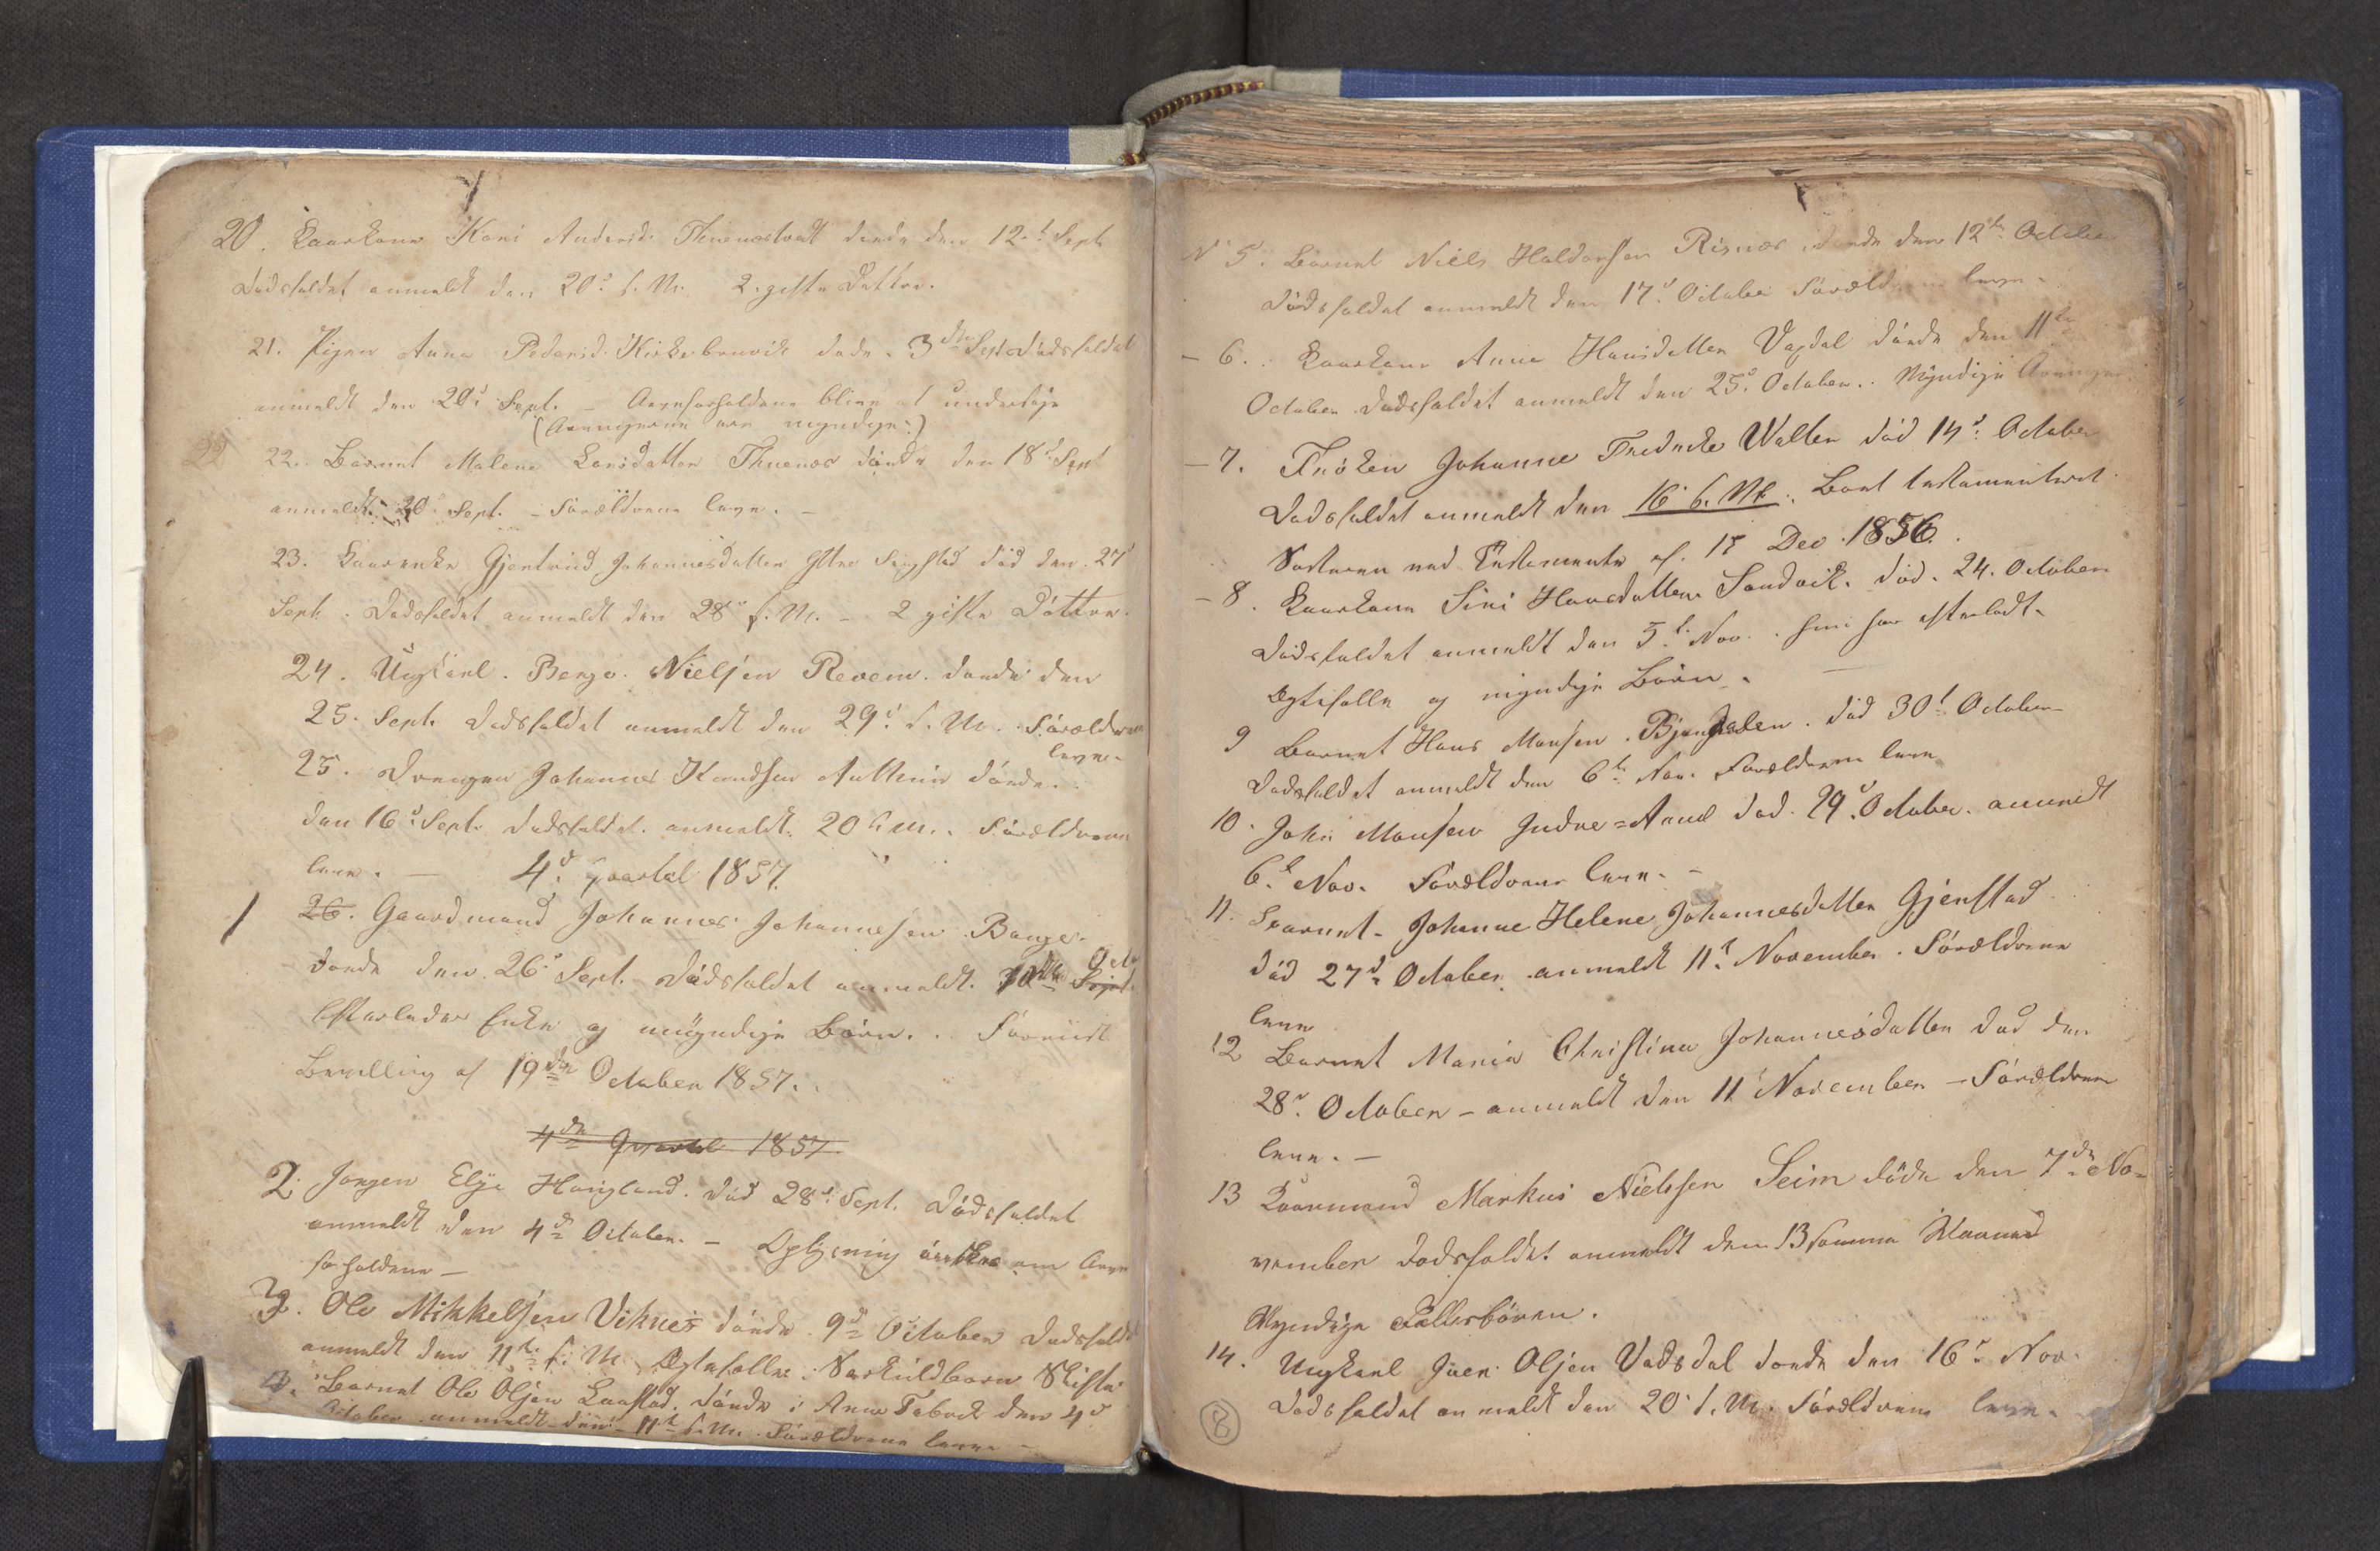 20. Kaarkone Kari Andersd. Thunestvedt døde den 12te Sept
Dødsfaldet anmeldt den 20d s. M. 2 gifte Døttre.
21. Pigen Anna Pedersd. Kirkebruvik døde 3die Sept Dødsfaldet
anmeldt den 20d Sept. – Arveforholdene bliver at undersøge
(Arvingerne ere myndige.)
22 22. Barnet Malene Larsdatter Thunæs døde den 18d Sept
anmeldt 20d Sept. – Forældrene leve. –
23. Kaarenke Gjertrud Johannesdatter Ytre Seigstad død den 27d
Sept. Dødsfaldet anmeldt den 28d s. M. – 2 gifte Døttre.
24. Ungkarl Berge Nielsen Revem døde den
25. Sept. Dødsfaldet anmeldt den 29d s. M. Forældrene
leve.
25. Drengen Johannes Knudsen døde
den 16d Sept. Dødsfaldet anmeldt 20 s. M. Forældrene
leve. — 4d Qvartal 1857.
1 26. Gaardmand Johannes Johannesen Bange
døde den 26d Sept. Dødsfaldet anmeldt 10de Sept. Octo
Efterlader Enke og myndige Børn. Forevist
Bevilling af 19de October 1857.
4de Qvartal 1857.
2. Jørgen Elge Haugland død 28d Sept. Dødsfaldet
anmeldt den 4d October. – Oplysning om Arve
forholdene –
3. Ole Mikkelsen Viknes døde 9d October Dødsfaldet
anmeldt den 11te s. M. Ægtefælle. Særkuldbarn Skifte
4. Barnet Ole Olsen Laastad døde i den 4d
October anmeldt den 11te s. M. Forældrene leve –
N 5. Barnet Niels Haldorsen Risnæs døde den 12te October
Dødsfaldet anmeldt den 17d October Forældrene leve.
– 6. Kaarkone Anne Hansdatter Vaxdal døde den 11te
October Dødsfaldet anmeldt den 25d October. Myndige Arvinger.
– 7. Frøken Johanne Fredricke Walter død 14d October
Dødsfaldet anmeldt den 16 s. Md. Boet testamenteret
Søsteren ved Testamente af 15 Dec 1856.
– 8. Kaarkone Siri Hansdatter Sandvik død 24. October
Dødsfaldet anmeldt den 5t Nov. hun har efterladt
Ægtefælle og myndige Børn. —
9 Barnet Hans Monsen død 30t October
Dødsfaldet anmeldt den 6te Nov. Forældrene leve
10. John Monsen Indre=Arne død 29d October. anmeldt
6t Nov. Forældrene leve. –
11. Barnet Johanne Helene Johannesdatter Gjerstad
død 27d October anmeldt 11t November. Forældrene
leve
12 Barnet Maria Christina Johannesdatter død den
28d October – anmeldt den 11 November – Forældrene
leve. –
13 Kaarmand Markus Nielsen Seim døde den 7de No-
vember Dødsfaldet anmeldt den 13 samme Maaned
Myndige Fællesbørn.
14. Ungkarl Iver Olsen Vadsdal døde den 16d Nov.
Dødsfaldet anmeldt den 20 s. M. Forældrene leve.
8